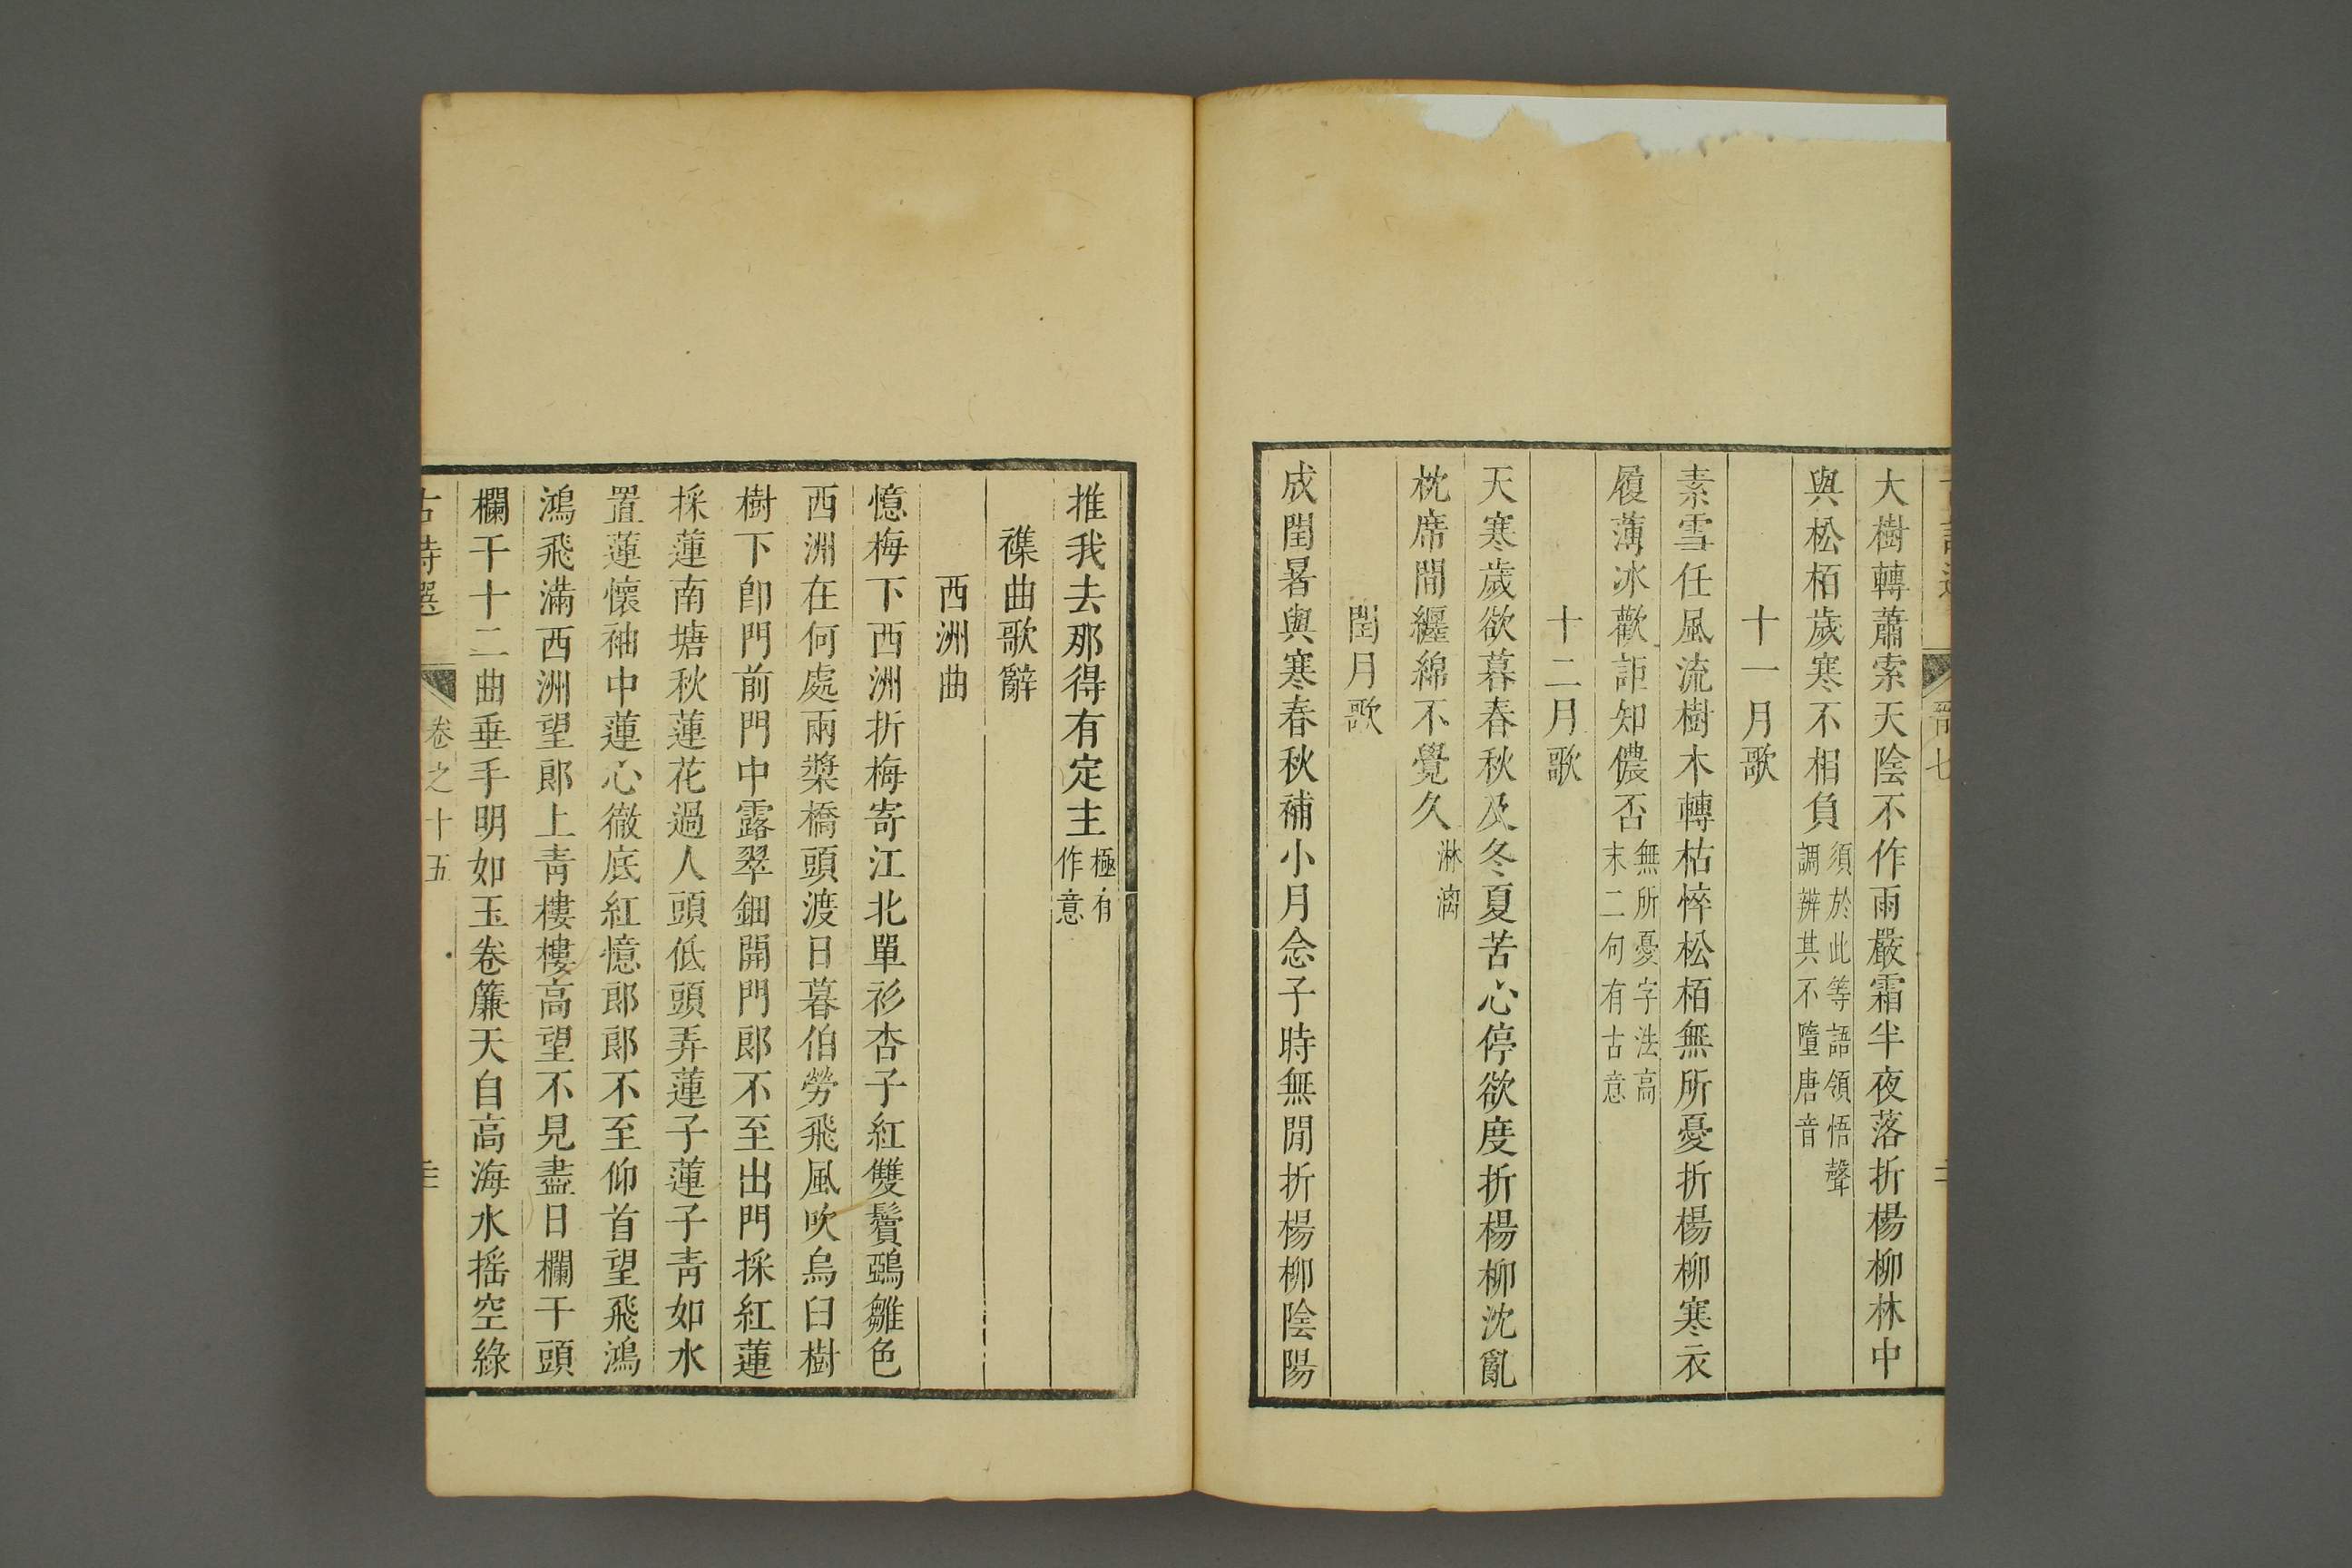 大樹轉蕭索天陰不作雨嚴霜半夜落折楊柳林中
與松栢歲寒不相負須於此等語領悟聲調辨其不墮唐音
十一月歌
素雪任風流樹木轉枯悴松栢無所憂折楊柳寒衣
履薄冰歡詎知儂否無所憂字法高末二句有古意
十二月歌
天寒歲欲暮春秋及冬夏苦心停欲度折楊柳沈亂
枕席間纏綿不覺久淋漓
閏月歌
成閏暑與寒春秋補小月念子時無閒折楊柳陰陽
推我去那得有定主極有作意
襍曲歌辭
西洲曲
憶梅下西洲折梅寄江北單衫杏子紅雙鬢鵶雛色
西洲在何處兩槳橋頭渡日暮伯勞飛風吹烏臼樹
樹下卽門前門中露翠鈿開門郎不至出門採紅蓮
採蓮南塘秋蓮花過人頭低頭弄蓮子蓮子靑如水
置蓮懷袖中蓮心徹底紅憶郎郎不至仰首望飛鴻
鴻飛滿西洲望郎上靑樓樓高望不見盡日欄干頭
欄干十二曲垂手明如玉卷簾天自高海水搖空綠
古詩選 卷之十五